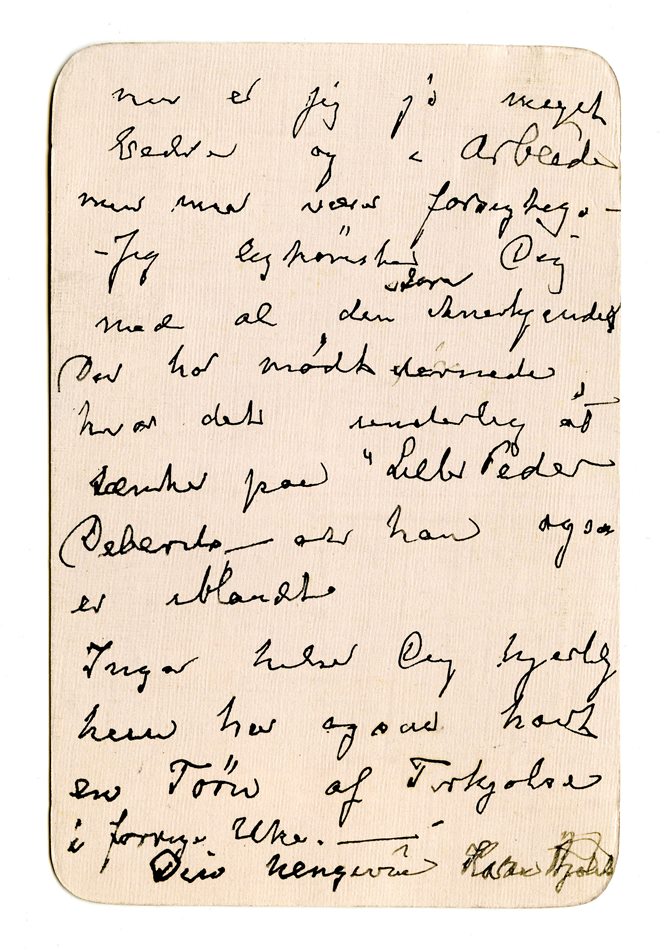 nu er jeg jo meget
bedre og i Arbeide
men maa være forsigtig. –
– Jeg lykönsker Dig
med al den store Anerkjendelse
Du har mødt dernede,
hvor det underlig at
tænke paa "Lille Peder
Deberitz – at han ogsaa
er iblandt
Inger hilser Dig hjertlig
hun har ogsaa havt
en Törn af Forkjølelse
i forrige Uke. —
Din hengivne